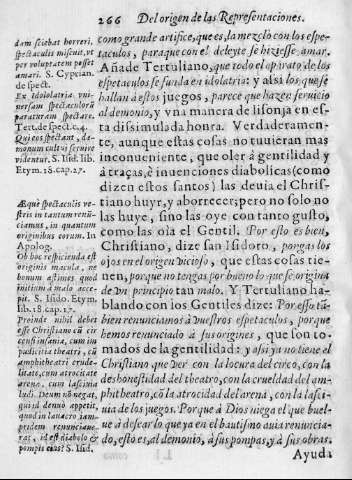 266 Del origen de las Representaciones.
dam sciebat horreri,
spectaculis miscuit, ut
per voluptatem posset
amari. S. Cyprian.
de spect.
Ex idololatria vni-
uersam spectaculorũ
paraturam stare.
Tert. de spect. c. 4.
Qui eos spectant, dæ-
monum cultui seruire
videntur. S. Isid. lib.
Etym. 18. cap. 27.
Æquè spectaculis ve-
stris in tantum renũ-
ciamus, in quantum
originibus eorum. In
Apolog.
Ob hoc respicienda est
originis macula, ne
bonum æstimes quod
initium à malo acce-
pit. S. Isido. Etym.
lib. 18. cap. 27.
Proinde nihil debet
esse Christiano cũ cir
censi insania, cum im
pudicitia theatri, cũ
amphitheatri crude-
litate, cum atrocitate
arena, cum lascinia
ludi. Deum nõ negat,
qui id denuo appetit,
quod in lauacro iam-
pridem renunciaue-
rat, id est diabolo &
pompis eius? S. Isid.
como grande artifice, que es, la mezclò con los espe-
taculos, para que con el deleyte se hiziesse amar.
Añade Tertuliano, que todo el aparato de los
espetaculos se funda en idolatria: y assi los que se
hallan à estos juegos, parece que hazen seruicio
al demonio, y vna manera de lisonja en es-
ta dissimulada honra. Verdaderamen-
te, aunque estas cosas no tuuieran mas
inconueniente, que oler à gentilidad y
à traças, è inuenciones diabolicas (como
dizen estos santos) las deuia el Chris-
tiano huyr, y aborrecer; pero no solo no
las huye, sino las oye con tanto gusto,
como las oìa el Gentil. Por esto es bien,
Christiano, dize san Isidoro, pongas los
ojos en el origen vicioso, que estas cosas tie-
nen, porque no tengas por bueno lo que se origina
de vn principio tan malo. Y Tertuliano ha-
blando con los Gentiles dize: Por esso tã-
bien renunciamos à vuestros espetaculos, porque
hemos renunciado à sus origines, que son to-
mados de la gentilidad: y assi ya no tiene el
Christiano que ver con la locura del circo, con la
deshonestidad del theatro, con la crueldad del am-
phitheatro, cõ la atrocidad del arena, con la lasci-
uia de los juegos. Porque à Dios niega el que buel-
ue à dessear lo que ya en el bautismo auia renuncia-
do, esto es, al demonio, à sus pompas, y à sus obras.
Ayuda